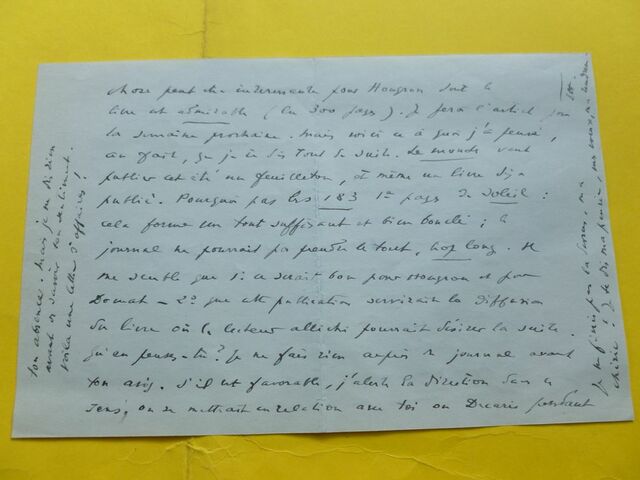 chose peut être intéressante pour Hougron dont le
livre est admirable (lu 300 pages). Je ferai l'article pour
la semaine prochaine. Mais voici ce à quoi j'ai pensé,
au fait, que je te dis tout de suite. Le monde veut
publier cet été un feuilleton, et même un livre déjà
publié. Pourquoi pas les 183 1res pages de Soleil :
cela forme un tout suffisant et bien bouclé ; le
journal ne pourrait pas prendre le tout, trop long. Il
me semble que 1° ce serait bon pour Hougron et pour
Domat - 2° que cette publication servirait la diffusion
du livre où le lecteur alléché pourrait désirer la suite.
Qu'en penses-tu ? Je ne fais rien auprès du journal avant
ton avis. S'il est favorable, j'alerte la direction dans ce
sens, on se mettrait en relation avec toi ou Ducaris pendant
ton absence. Mais je ne dis rien
avant de savoir ton sentiment.
Voilà une lettre d'affaires !
Je ne finis pas la
chérie ! Je te dis ma pensée, mes voeux, ma tendresse